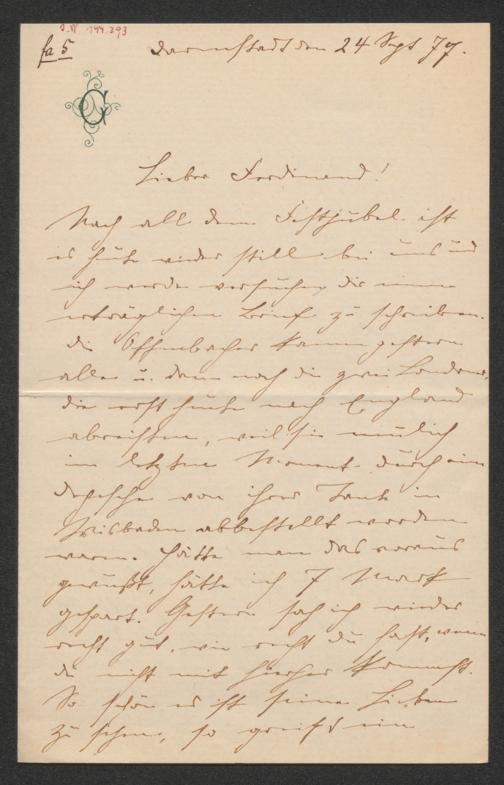 J.N. 144.293
fa 5
Darmstadt den 24 Sept 77.
Lieber Ferdinand!
Nach all dem Festjubel ist
es heute wieder still bei uns und
ich werde versuchen dir einen
erträglichen Brief zu schreiben.
Die Offenbacher kamen gestern
alle u. dann noch die zwei Londoner,
die erst heute nach England
abreisten, weil sie nämlich
im letzten Moment durch eine
Depesche von ihrer Tante in
Wiesbaden abbestellt worden
waren. Hätte man das voraus
gewußt, hätte ich 7 Mark
gespart. Gestern sah ich wieder
recht gut, wie recht du hast, wenn
du nicht mit hierher kommst.
So schön es ist seine Lieben
zu sehen, so greift ein